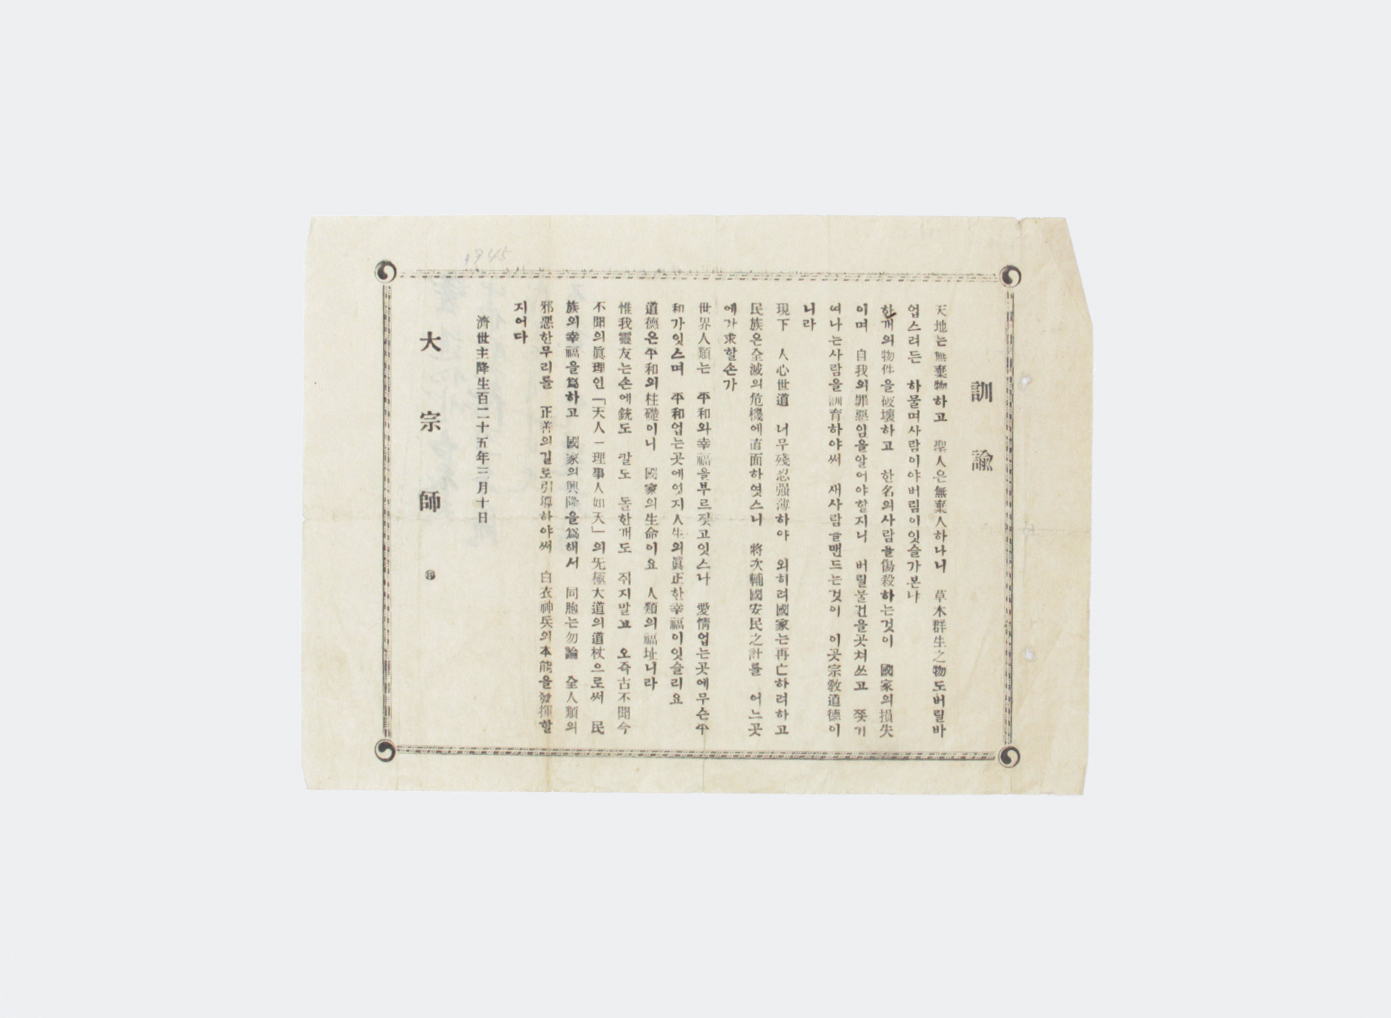 訓諭
天地는無棄物하고 聖人은無棄人하나니 草木群生之物도버릴바
업스려든 하물며사람이야버림이잇슬가본냐
한개의物件을破壞하고 한名의사람을傷殺하는것이 國家의損失
이며 自我의罪惡임을알어야할지니 버릴물건을곳처쓰고 쫏기
여나는사람을訓育하야써 새사람을맨드는것이 이곳宗敎道德이
니라
現下 人心世道 너무殘忍强薄하야 외히려國家는再亡하려하고
民族은全滅의危機에直面하엿스니 將次輔國安民之計를 어느곳
에가求할손가
世界人類는 平和와幸福을부르짓고잇스나 愛情업는곳에무슨平
和가잇스며 平和업는곳에엇지人生의眞正한幸福이잇슬리요
道德은平和의柱礎이니 國家의生命이요 人類의福址니라
惟我靈友는손에銃도 칼도 돌한개도 쥐지말고 오즉古不聞今
不聞의眞理인「天人一理事人如天」의无極大道의道杖으로써 民
族의幸福을爲하고 國家의興隆을爲해서 同胞는勿論 全人類의
邪惡한무리를 正善의길로引導하야써 白衣神兵의本能을發揮할
지어다
濟世主降生百二十五年三月十日
大宗師
1945